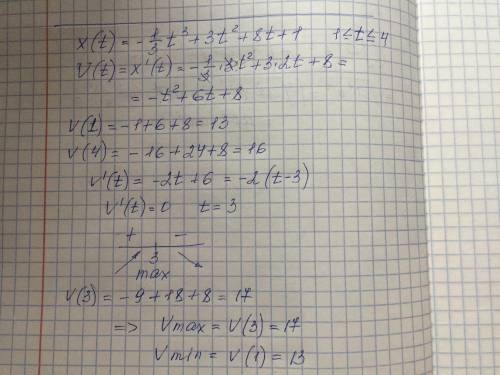 x(t) = -1/3 t³ + 3t² + 8t + 1 1 ≤ t ≤ 4
V(t) = x'(t) = -1/3 · 3t² + 3 · 2t + 8 =
= -t² + 6t + 8
V(1) = -1 + 6 + 8 = 13
V(4) = -16 + 24 + 8 = 16
V'(t) = -2t + 6 = -2(t-3)
V'(t) = 0 t = 3
+ -
3
max
V(3) = -9 + 18 + 8 = 17
=> Vmax = V(3) = 17
Vmin = V(1) = 13